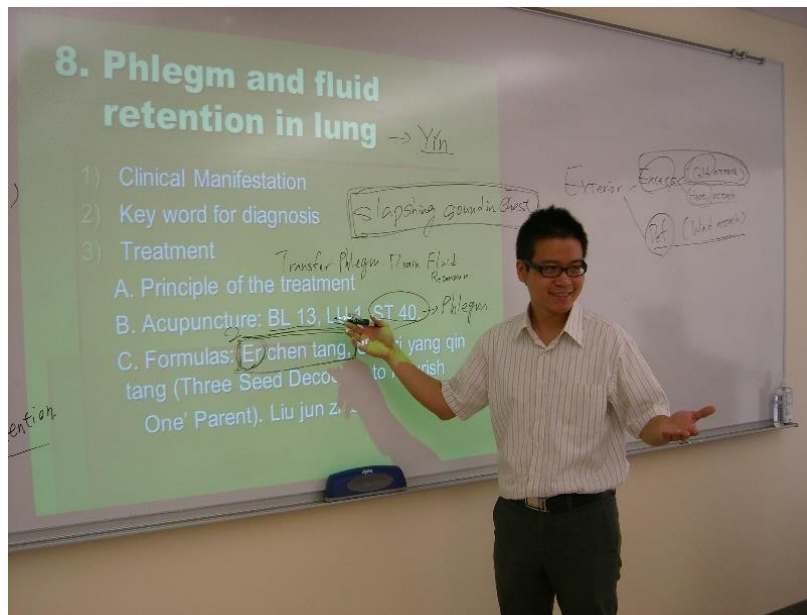 8. Phlegm and fluid
retention in lung → Yin
1) Clinical Manifestation
2) Key word for diagnosis
slapshing sound in Chest
3) Treatment
Transfer Phlegm Drain Fluid
A. Principle of the treatment
B. Acupuncture: BL 13, LU 1, ST 40 → Phlegm
C. Formulas: Er chen tang, yang qin
tang (Three Seed to
One' Parent). Liu jun
Exterior Excess
Def (Wind